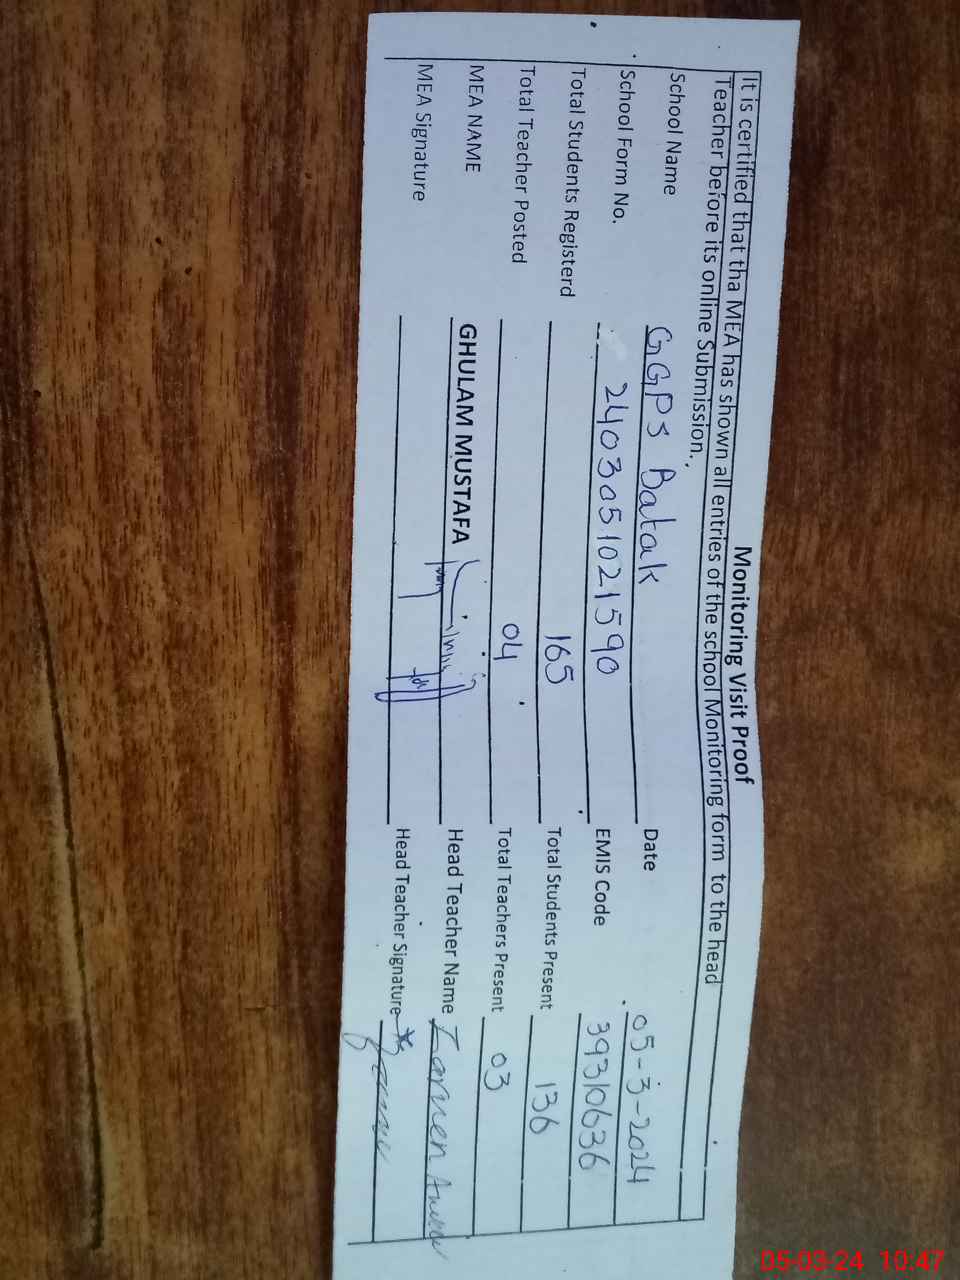 Monitoring Visit Proof
It is certified that tha MEA has shown all entries of the school Monitoring form to the head
Teacher before its online Submission..
School Name GGPS Batak Date 05-3-2024
School Form No. 2403051021590 EMIS Code 39310636
Total Students Registerd 165 Total Students Present 136
Total Teacher Posted 04 Total Teachers Present 03
MEA NAME GHULAM MUSTAFA Head Teacher Name
MEA Signature Head Teacher Signature
05-03-24 10:47